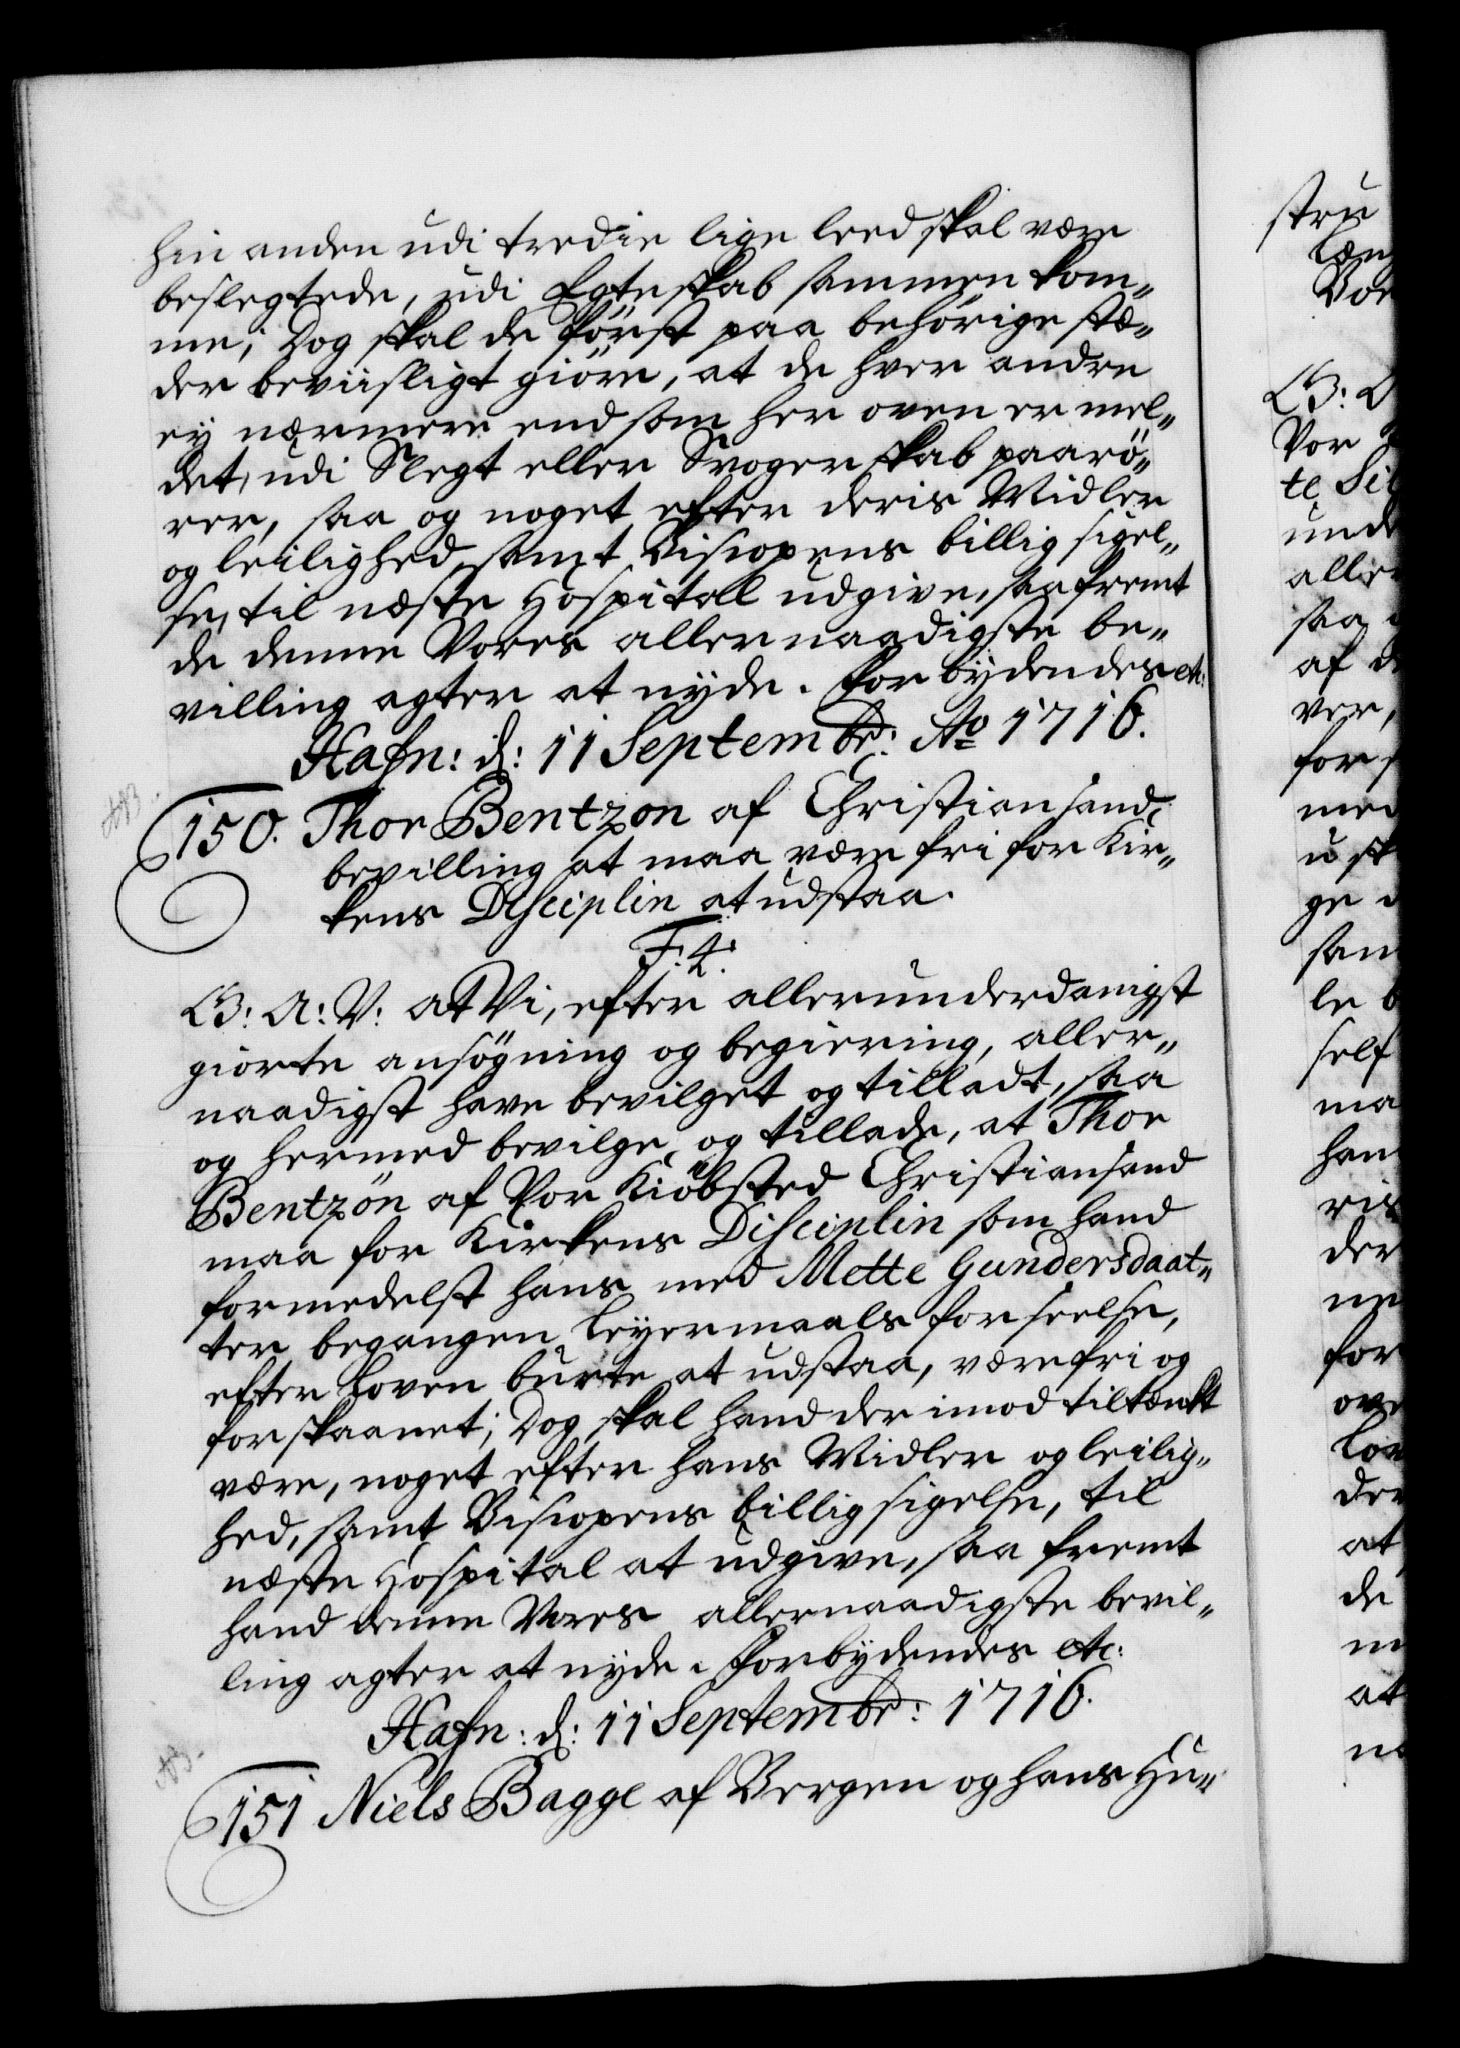 hin anden udi tredie lige leed skal være
beslegtede, udi Egteskab sammen kom„
me; Dog skal de først paa behörige stæ„
der beviisligt giöre, at de hver andre
ey nærmere end som her oven er mel„
det, udi Slegt eller Svogerskab paarö„
rer, saa og noget efter deris Midler
og leilighed samt Biscopens billig sigel„
se, til næste Hospitall udgive, saafremt
de denne Vores allernaadigste be„
villing agter at nyde. Forbydendes etc:
Hafn: d: 11 Septembr: Ao 1716.
150. Thor Bentzon af Christiansand,
bevilling at maa være fri for Kir„
kens Disciplin at udstaa.
F: 4.
G: A: V: at Vi, efter allerunderdanigst
giorte ansøgning og begiering, aller„
naadigst have bevilget og tilladt, saa
og hermed bevilge og tillade, at Thor
Bentzön af Vor Kiöbsted Christiansand
maa for Kirkens Disciplin som hand
formedelst hans med Mette Gundersdaat„
ter begangen Leyermaals forseelse,
efter Loven burte at udstaa, være fri og
forskaanet; Dog skal hand derimod tiltænkt
være, noget efter hans Midler og leilig„
hed, samt Biscopens billig sigelse, til
næste Hospital at udgive, saa fremt
hand denne Vores allernaadigste bevil„
ling agter at nyde. Forbydendes etc:
Hafn: d: 11 Septembr: 1716.
151 Niels Bagge af Bergen og hans Hu„